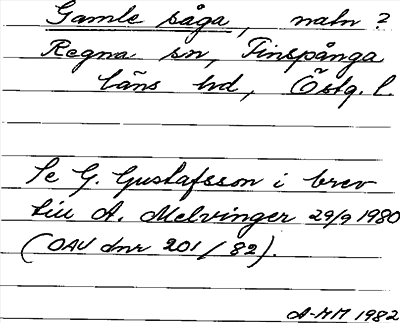 Gamle såga, natn?
Regna sn, Finspånga
läns hd, Östg. l.
Se G. Gustafsson i brev
till A. Melvinger 29/9 1980
(OAU dnr 201/82).
A-MM 1982